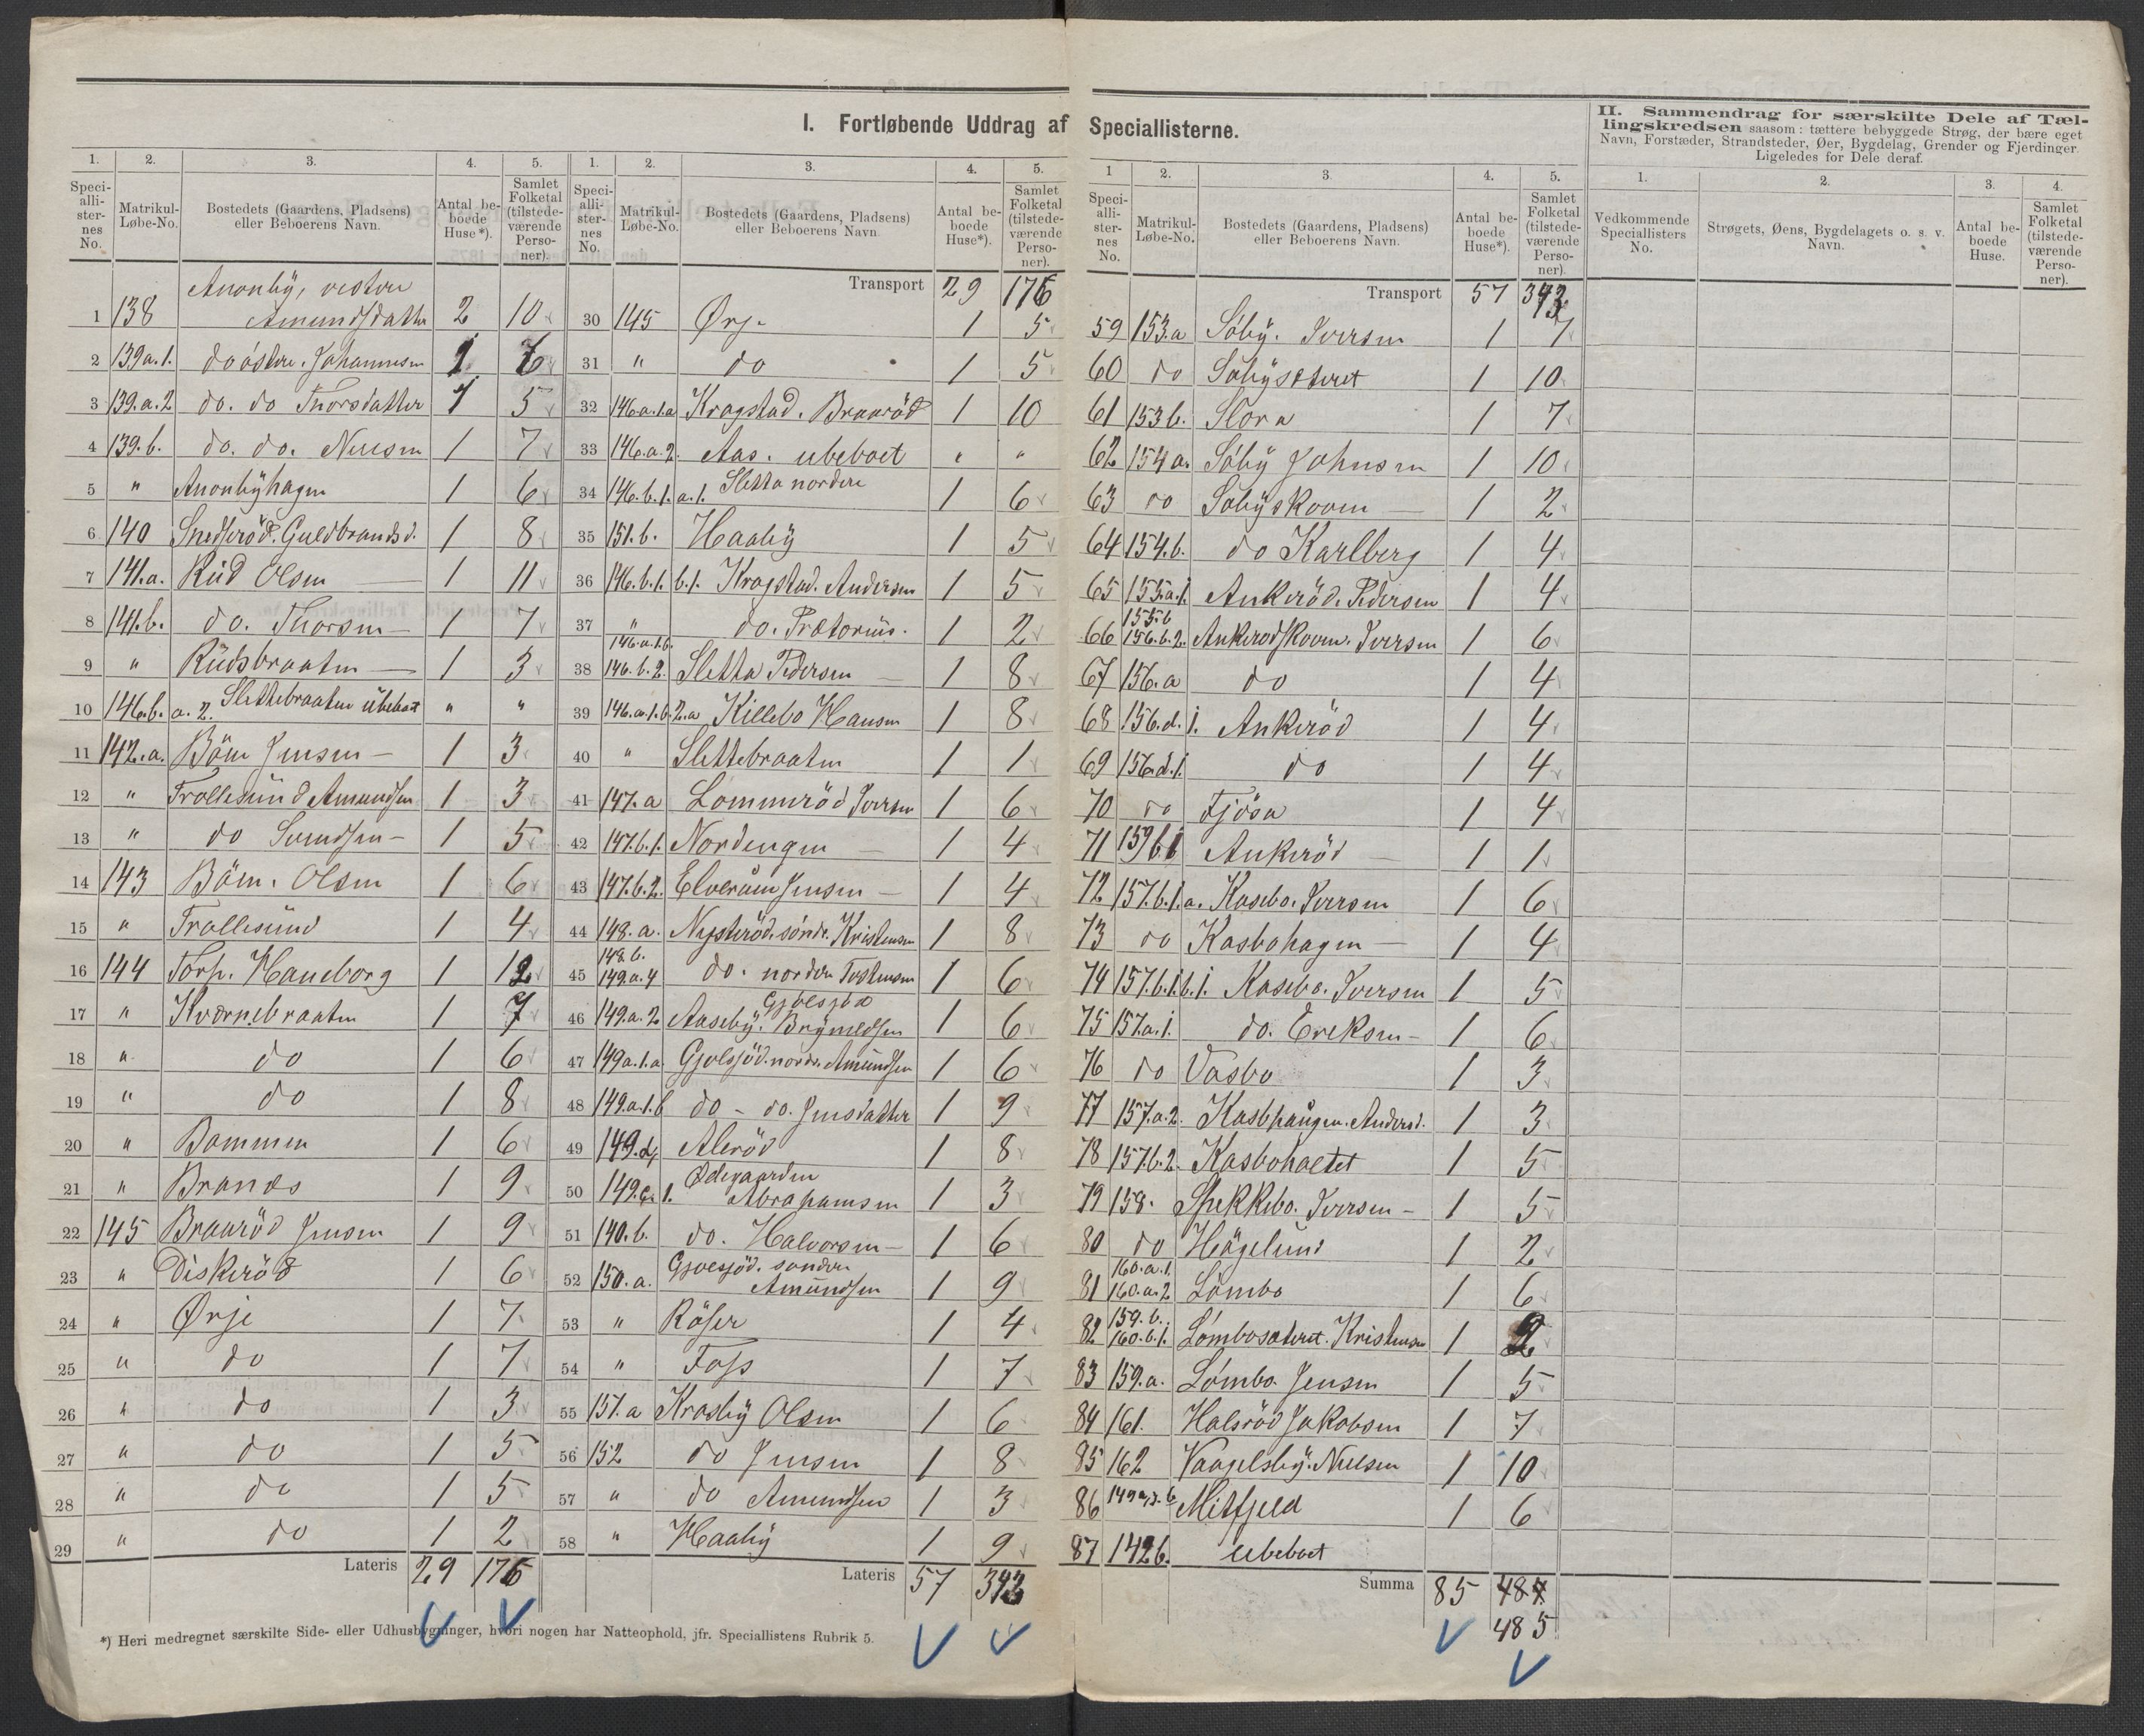 I. Fortløbende Uddrag af Speciallisterne.
1. 2. 3. 4. 5.
Speciallisternes No. Matrikul-Løbe-No. Bostedets (Gaardens, Pladsens) eller Beboerens Navn. Antal beboede Huse*). Samlet Folketal (tilstedeværende Personer).
1 138 Anonby, vestre Amundsdatter 2 10
2 139a.1. do østre. Johannesen 1 6
3 139.a.2 do. do Thorsdatter 1 5
4 139.b. do. do. Nilsen 1 7
5 " Anonbyhagen 1 6
6 140 Snedserød. Guldbrandsd. 1 8
7 141.a. Rud Olsen 1 11
8 141.b. do. Thorsen 1 7
9 " Rudsbraaten 1 3
10 146.b.a.2. Slettebraaten ubeboet " "
11 142.a. Böen Jensen 1 3
12 " Trollesund Amundsen 1 3
13 " do Svendsen 1 5
14 143 Böen. Olsen 1 6
15 " Trollesund 1 4
16 144 Torp. Haneborg 1 12
17 " Kvernebraaten 1 7
18 " do 1 6
19 " do 1 8
20 " Bommen 1 6
21 " Brandes 1 9
22 145 Braaröd Jensen 1 9
23 " Diskeröd 1 6
24 " Ørje 1 7
25 " do 1 7
26 " do 1 3
27 " do 1 5
28 " do 1 5
29 " do 1 2
Lateris 29 176
*) Heri medregnet særskilte Side- eller Udhusbygninger, hvori nogen har Natteophold, jfr. Speciallistens Rubrik 5.
1. 2. 3. 4. 5.
Speciallisternes No. Matrikul-Løbe-No. Bostedets (Gaardens, Pladsens) eller Beboerens Navn. Antal beboede Huse*). Samlet Folketal (tilstedeværende Personer).
Transport 29 176
30 145 Ørje 1 5
31 " do 1 5
32 146a.1.a Kragstad. Braaröd 1 10
33 146.a.2. Aas. ubeboet " "
34 146.b.1.a.1. Sletta nordre 1 6
35 151.b. Haaby 1 5
36 146.b.1.b.1. Kragstad. Andersen 1 5
37 " do. Prætorius. 1 2
38 146.a.1.b. 146.b.2. Sletta Pedersen 1 8
39 146.a.1.b.2.a Killebo Hansen 1 8
40 " Slettebraaten 1 1
41 147.a Lommeröd Iversen 1 6
42 147.b.1. Nordengen 1 4
43 147.b.2. Elverum Jensen 1 4
44 148.a. Nysteröd. söndr. Kristensen 1 8
45 148.b. 149.a.4 do. nordre Torstensen 1 6
46 149.a.2 Aaseby. Brynildsen 1 6
47 149a.1.a Gjölsjöd. nordre. Amundsen 1 6
48 149.a.1.b do - do. Jensdatter 1 9
49 149.d. Aleröd 1 8
50 149.c.1. Ødegaarden Abrahamsen 1 3
51 140.b. do. Halvorsen 1 6
52 150.a. Gjølsjöd. søndre Amundsen 1 9
53 " Röser 1 4
54 " Foss 1 7
55 151.a Krosby Olsen 1 6
56 152 do Jensen 1 8
57 " do Amundsen 1 3
58 " Haaby 1 9
Lateris 57 343
1 2. 3. 4. 5.
Speciallisternes No. Matrikul-Løbe-No. Bostedets (Gaardens, Pladsens) eller Beboerens Navn. Antal beboede Huse*). Samlet Folketal (tilstedeværende Personer).
Transport 57 343
59 153.a Söby. Iversen 1 7
60 do Söbysæteret 1 10
61 153b. Slora 1 7
62 154a. Söby Johnsen 1 10
63 do Söbyskoven 1 2
64 154.b. do Karlberg 1 4
65 155.a.1. Ankeröd. Pedersen 1 4
66 155.b 156.b.2. Ankerodskoven. Iversen 1 6
67 156.a do 1 4
68 156.d.1. Ankeröd 1 4
69 156.d.1. do 1 4
70 do Fjösa 1 4
71 Ankeröd 1 1
72 157.b.1.a. Kasebo. Iversen 1 6
73 do Kasbohagen 1 4
74 157.b.1.b.1. Kasebo. Iversen 1 5
75 157.a.1. do. Ereksen 1 6
76 do Vasbo 1 3
77 157.a.2. Kasbhaugen. Andersd. 1 3
78 157.b.2. Kasboholtet 1 5
79 158. Spekkebo. Iversen 1 5
80 do Högelund 1 2
81 160.a.1. 160.a.2 Lömbo 1 6
82 159.b. 160.b.1. Lömbosæteret. Kristensen 1 2
83 159.a. Lömbo. Jensen 1 5
84 161. Halsröd Jakobsen 1 7
85 162 Vaagelsby. Nielsen 1 10
86 Mitfjeld 1 6
87 142b. ubeboet
Summa 85 484
485
II. Sammendrag for særskilte Dele af Tællingskredsen saasom: tættere bebyggede Strøg, der bære eget Navn, Forstæder, Strandsteder, Øer, Bygdelag, Grender og Fjerdinger. Ligeledes for Dele deraf.
1. 2. 3. 4.
Vedkommende Speciallisters No. Strøgets, Øens, Bygdelagets o. s. v. Navn. Antal beboede Huse. Samlet Folketal (tilstedeværende Personer).